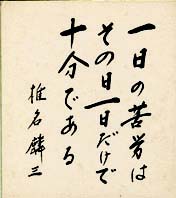 一日の苦労は
その日一日だけで
十分である
椎名麟三